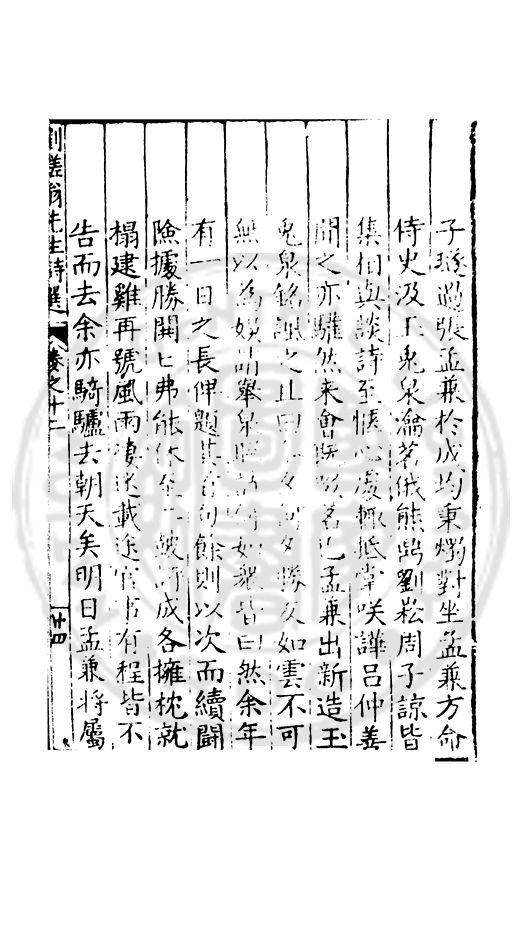 子璲過張孟兼於成均秉燭對坐孟兼方命
侍史汲玉兔泉瀹茗俄熊鼎劉崧周子諒皆
集伯與談詩至愜心處輒抵掌咲譁呂仲善
聞之亦驩然来會既啜茗已孟兼出新造玉
兔泉銘誦之且曰今夕何夕勝友如雲不可
無以為娛請舉泉聯詩何如衆皆曰然余年
有一日之長俾題其首句餘則以次而續闘
險據勝闘匕弗能休至二鼓詩成各擁枕就
榻建雞再號風雨凄迷載途官事有程皆不
告而去余亦騎驢去朝天矣明日孟兼将屬
劉槎翁先生詩選 卷之十二 廿四